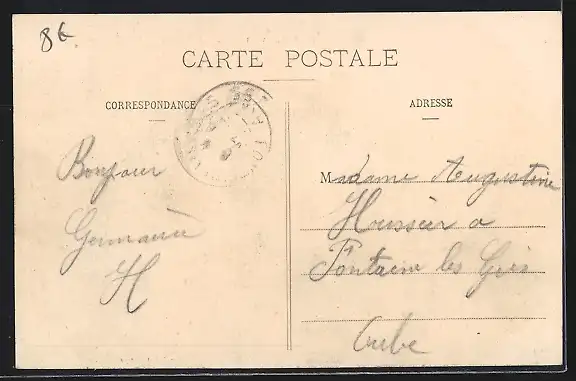 86
CARTE POSTALE
CORRESPONDANCE
ADRESSE
Bonjour
Germaine
H
Madame Augustine
Houssier a
Fontaine les Grès
Aube